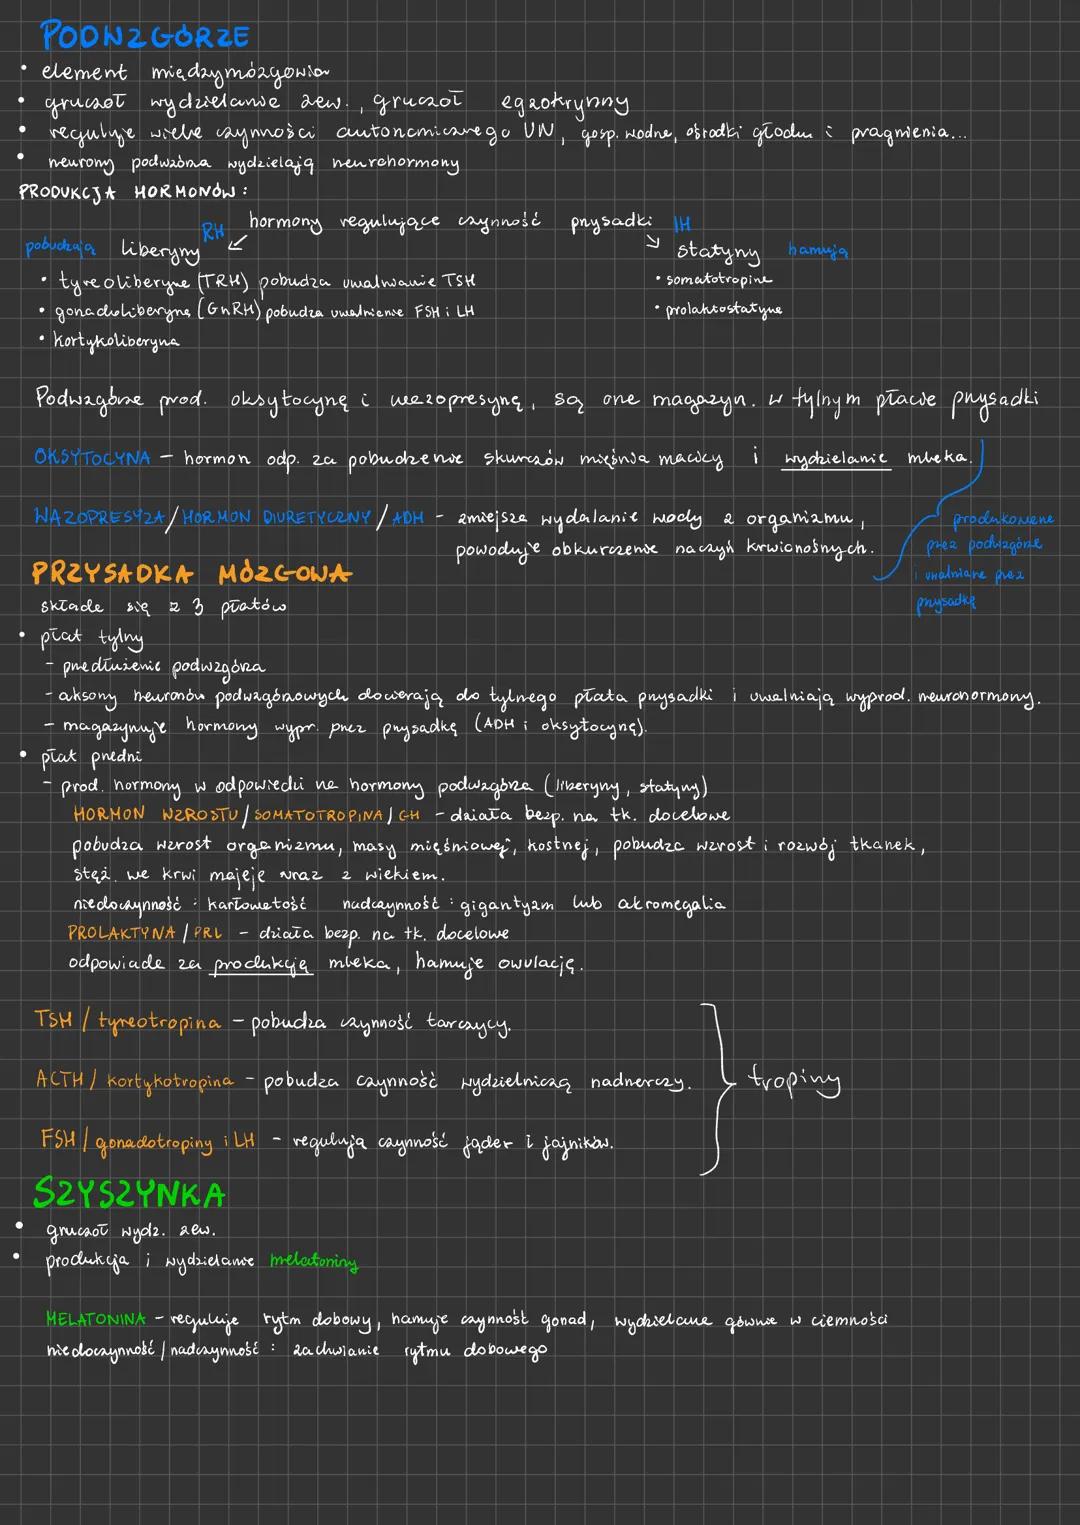 PODWZGÓRZE
• element międzymózgowia
• gruczoł wydzielanie zew., gruczoł egzokrynny
• reguluje wiele czynności autonomicznego UN, gosp. wodna, ośrodki głodu i pragnienia...
• neurony podwzórza wydzielają neurohormony
PRODUKCJA HORMONÓW:
hormony regulujące czynność przysadki
RH IH
pobudzają liberyny statyny hamują
• tyreoliberyna (TRH) pobudza uwalnianie TSH
• somatotropina
• gonadoliberyna (GnRH) pobudza uwalnienie FSH i LH
• prolaktostatyna
• kortykoliberyna
Podwzgórze prod. oksytocynę i wazopresynę, są one magazyn. w tylnym płacie przysadki
OKSYTOCYNA - hormon odp. za pobudzenie skurczów mięśnia macicy i wydzielanie mleka.
WAZOPRESYZA/HORMON DIURETYCZNY/ADH - zmiejsza wydalanie wody z organizmu,
powoduje obkurczenie naczyń krwionośnych.
produkowane
przez podwzgórze
i uwalniane przez
przysadkę
PRZYSADKA MÓZGOWA
składa się z 3 płatów
• płat tylny
- przedłużenie podwzgórza
- aksony neuronów podwzgórzowych docierają do tylnego płata przysadki i uwalniają wyprod. neurohormony.
- magazynuje hormony wypr. przez przysadkę (ADH i oksytocynę).
• płat przedni
- prod. hormony w odpowiedzi na hormony podwzgórza (liberyny, statyny)
HORMON WZROSTU/SOMATOTROPINA/GH - działa bezp. na tk. docelowe
pobudza wzrost organizmu, masy mięśniowej, kostnej, pobudza wzrost i rozwój tkanek,
stęż. we krwi majeje wraz z wiekiem.
niedoczynność: karłowatość nadczynność: gigantyzm lub akromegalia
PROLAKTYNA/PRL - działa bezp. na tk. docelowe
odpowiada za produkcję mleka, hamuje owulację.
TSH/tyreotropina - pobudza czynność tarczycy.
ACTH/kortykotropina - pobudza czynność wydzielniczą nadnerczy.
tropiny
FSH/gonadotropiny i LH - regulują czynność jąder i jajników.
SZYSZYNKA
• gruczoł wydz. zew.
• produkcja i wydzielanie melatoniny
MELATONINA - reguluje rytm dobowy, hamuje czynność gonad, wydzielana głównie w ciemności
niedoczynność/nadczynność: zachwianie rytmu dobowego